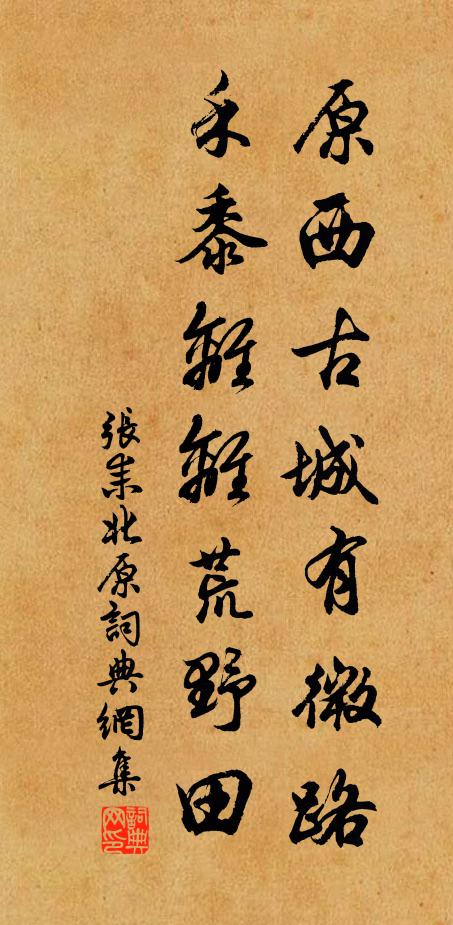 原西古城有微路
禾黍離離荒野田
張耒北原詞典網集
詞典网印